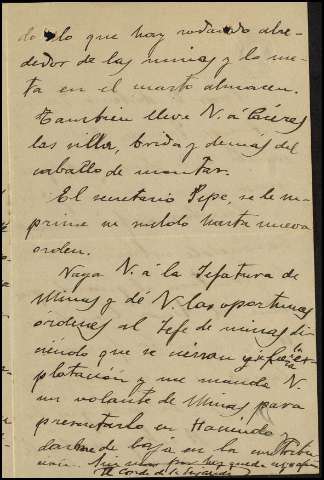 do lo que hay rodando alre-
dedor de las minas y lo me-
ta en el cuarto almacen.
Tambien lleve V. á Cáceres
las silla, brida y demás del
caballo de montar.
El secretario Pepe, se le su-
prime su sueldo hasta nueva
orden.
Vaya V. á la Jefatura de
Minas y dé V. las oportunas
órdenes al Jefe de minas di-
ciendo que se cierran y la ex-
plotación y me mande V.
un volante de Minas para
presentarlo en Hacienda y
darme de baja en la contribu-
ción.